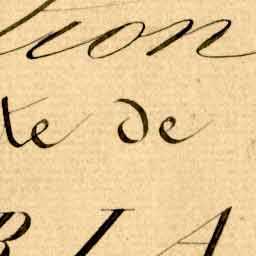 tion
te de
RIA